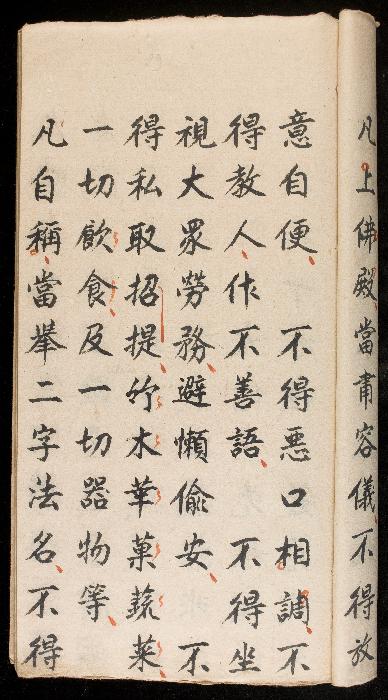 凡上佛殿當肅容儀不得放
意自便 不得悪口相調不
得教人作不善語 不得坐
視大眾勞務避懶偷安 不
得私取招提竹木華菓蔬菜
一切飲食及一切器物等
凡自稱當舉二字法名不得